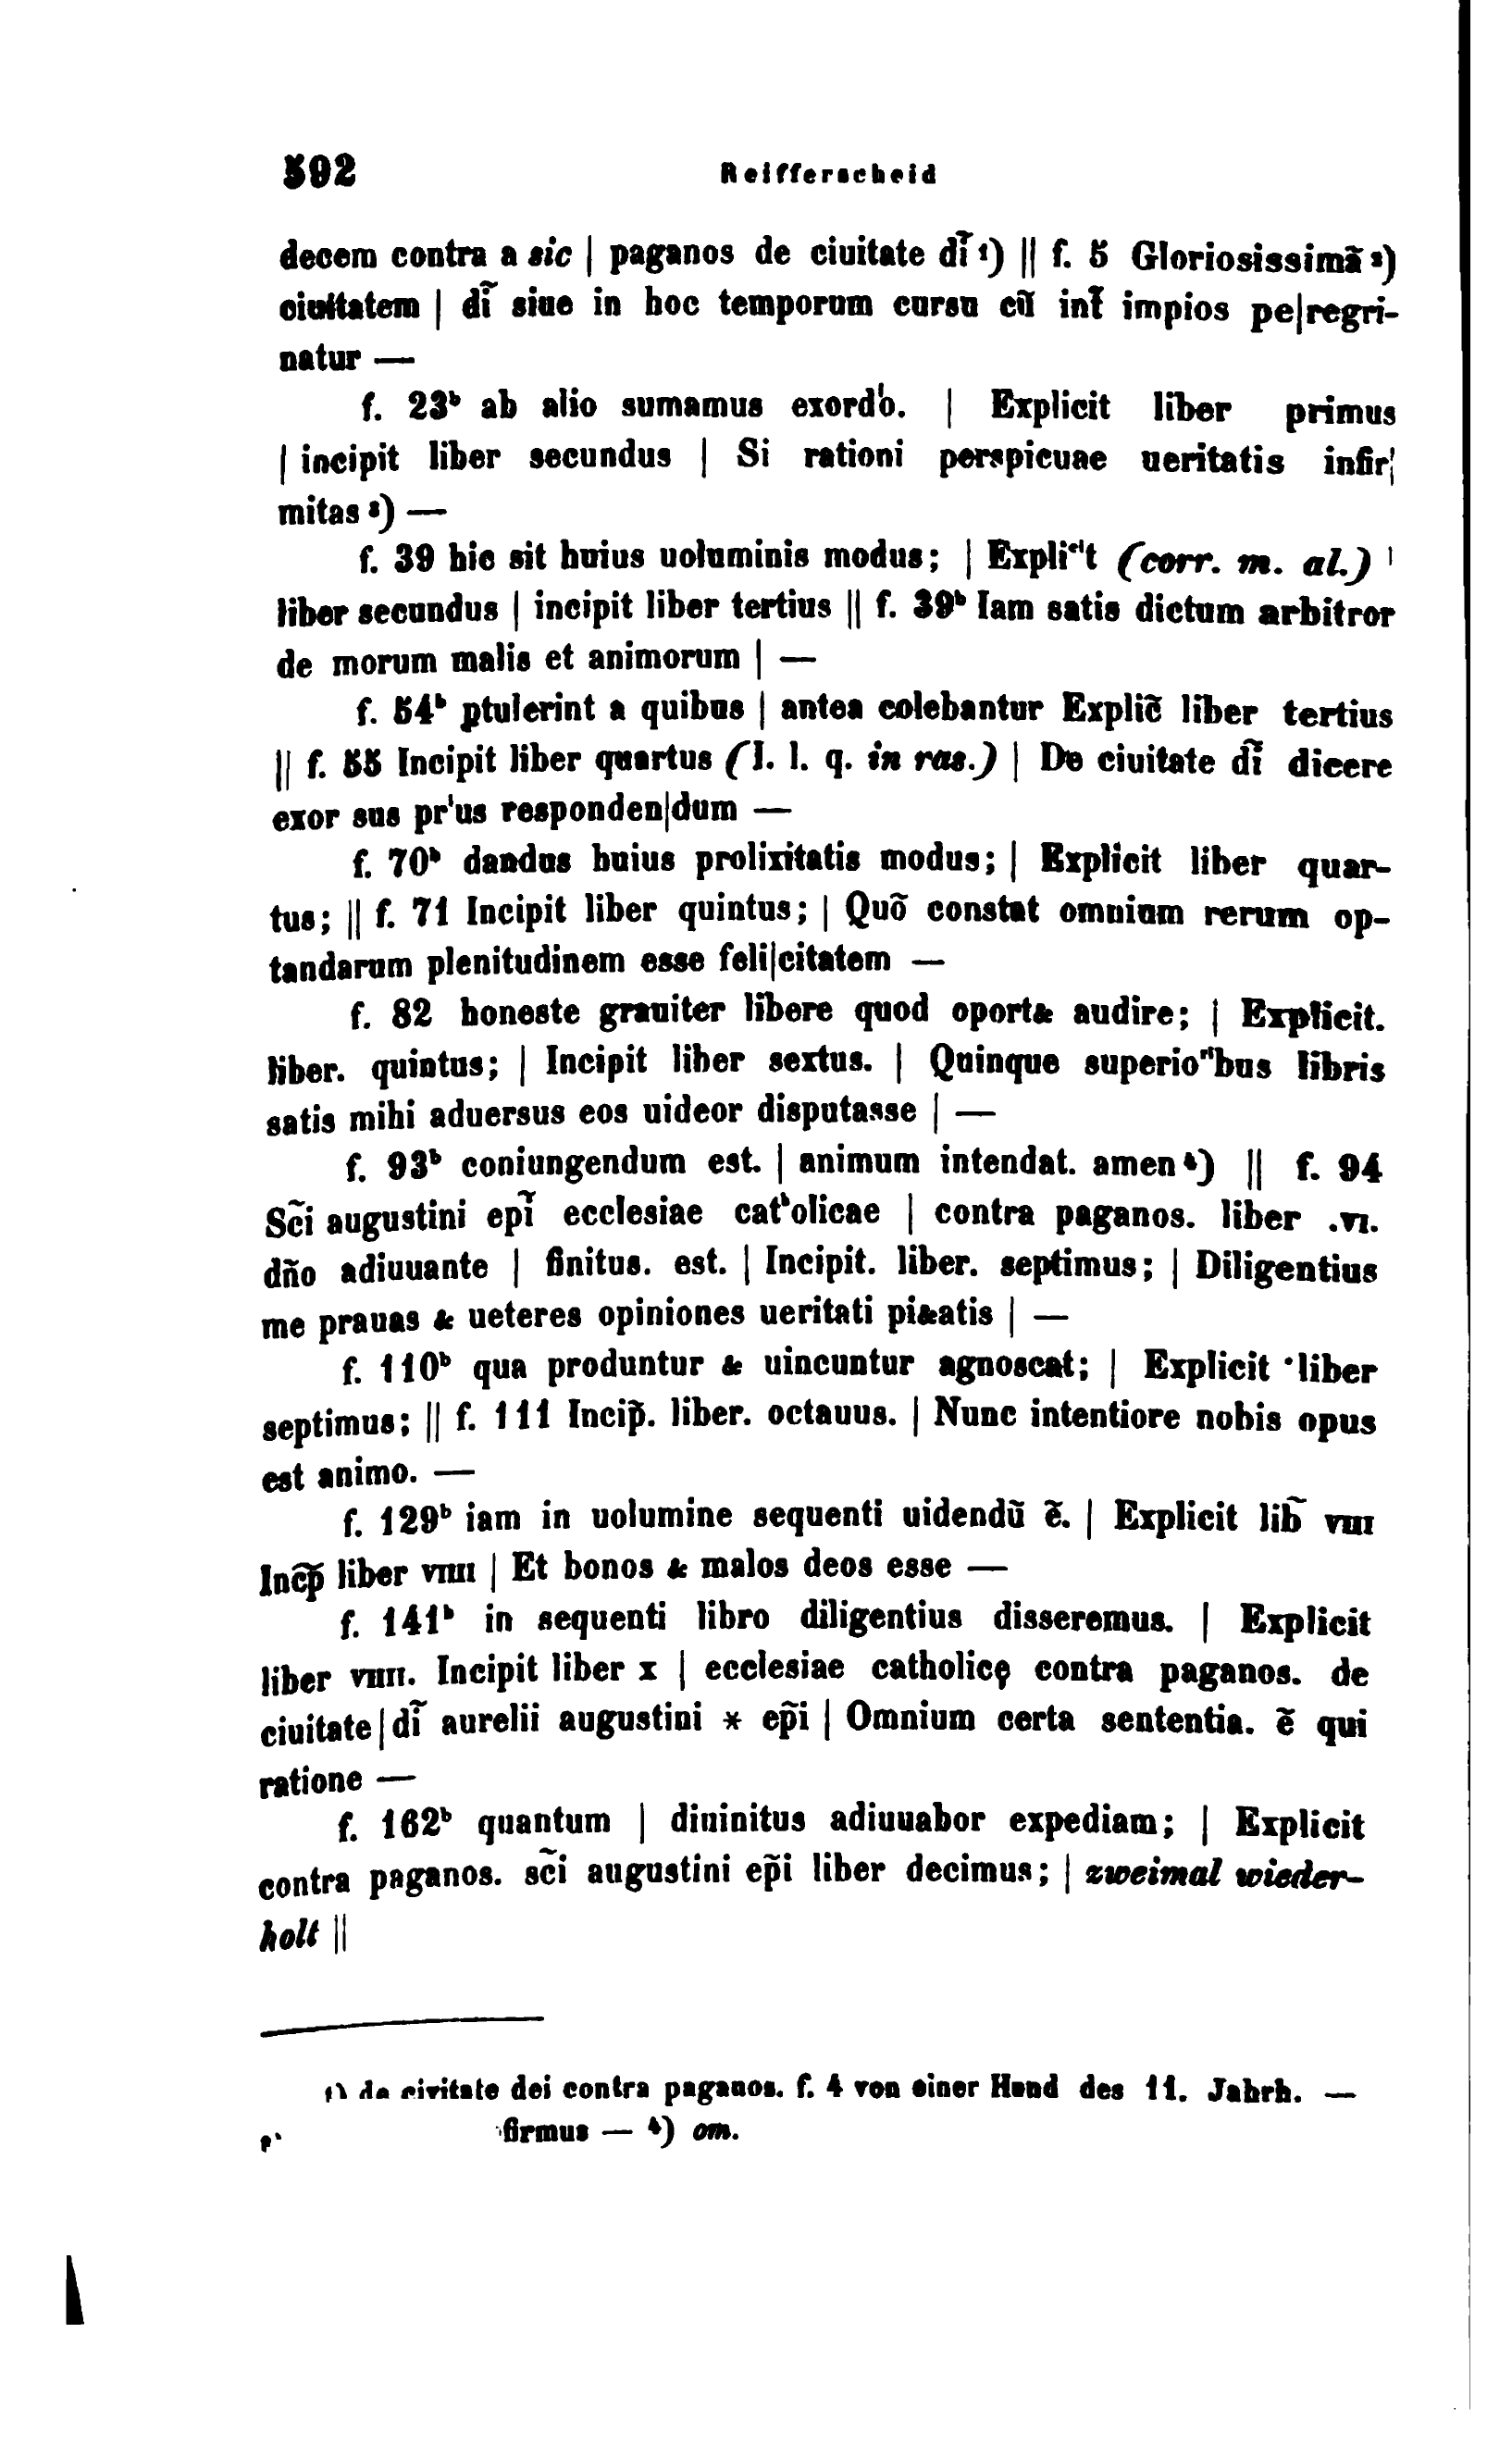 592 Reifferscheid
decem contra a sic | paganos de ciuitate dı̃ ¹) || f. 5 Gloriosissimã ²)
ciuitatem | dı̃ siue in hoc temporum cursu cũ int̃ impios pe|regri-
natur —
f. 23ᵇ ab alio sumamus exordıo. | Explicit liber primus
| incipit liber secundus | Si rationi perspicuae ueritatis infir|
mitas ³) —
f. 39 hic sit huius uoluminis modus; | Expliᶜⁱt (corr. m. al.) |
liber secundus | incipit liber tertius || f. 39ᵇ Iam satis dictum arbitror
de morum malis et animorum | —
f. 54ᵇ ꝑtulerint a quibus | antea colebantur Explic̃ liber tertius
|| f. 55 Incipit liber quartus (I. l. q. in ras.) | De ciuitate dı̃ dicere
exor sus prⁱus responden|dum —
f. 70ᵇ dandus huius prolixitatis modus; | Explicit liber quar-
tus; || f. 71 Incipit liber quintus; | Quõ constat omnium rerum op-
tandarum plenitudinem esse feli|citatem —
f. 82 honeste grauiter libere quod oport& audire; | Explicit.
liber. quintus; | Incipit liber sextus. | Quinque superioʳⁱbus libris
satis mihi aduersus eos uideor disputasse | —
f. 93ᵇ coniungendum est. | animum intendat. amen ⁴) || f. 94
Sc̃i augustini epı̃ ecclesiae catʰolicae | contra paganos. liber .VI.
dño adiuuante | finitus. est. | Incipit. liber. septimus; | Diligentius
me prauas & ueteres opiniones ueritati pi&atis | —
f. 110ᵇ qua produntur & uincuntur agnoscat; | Explicit ·liber
septimus; || f. 111 Incip̃. liber. octauus. | Nunc intentiore nobis opus
est animo. —
f. 129ᵇ iam in uolumine sequenti uidendũ ẽ. | Explicit lib̃ VIII
Inc̃p̃ liber VIIII | Et bonos & malos deos esse —
f. 141ᵇ in sequenti libro diligentius disseremus. | Explicit
liber VIIII. Incipit liber X | ecclesiae catholicę contra paganos. de
ciuitate | dı̃ aurelii augustini * ep̃i | Omnium certa sententia. ẽ qui
ratione —
f. 162ᵇ quantum | diuinitus adiuuabor expediam; | Explicit
contra paganos. sc̃i augustini ep̃i liber decimus; | zweimal wieder-
holt ||
¹) de civitate dei contra paganos. f. 4 von einer Hand des 11. Jahrh. —
firmus — ⁴) om.